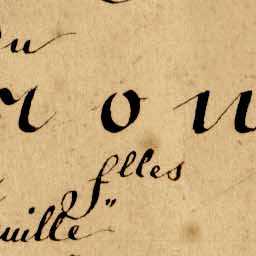 Du
r o u
flles
uille"